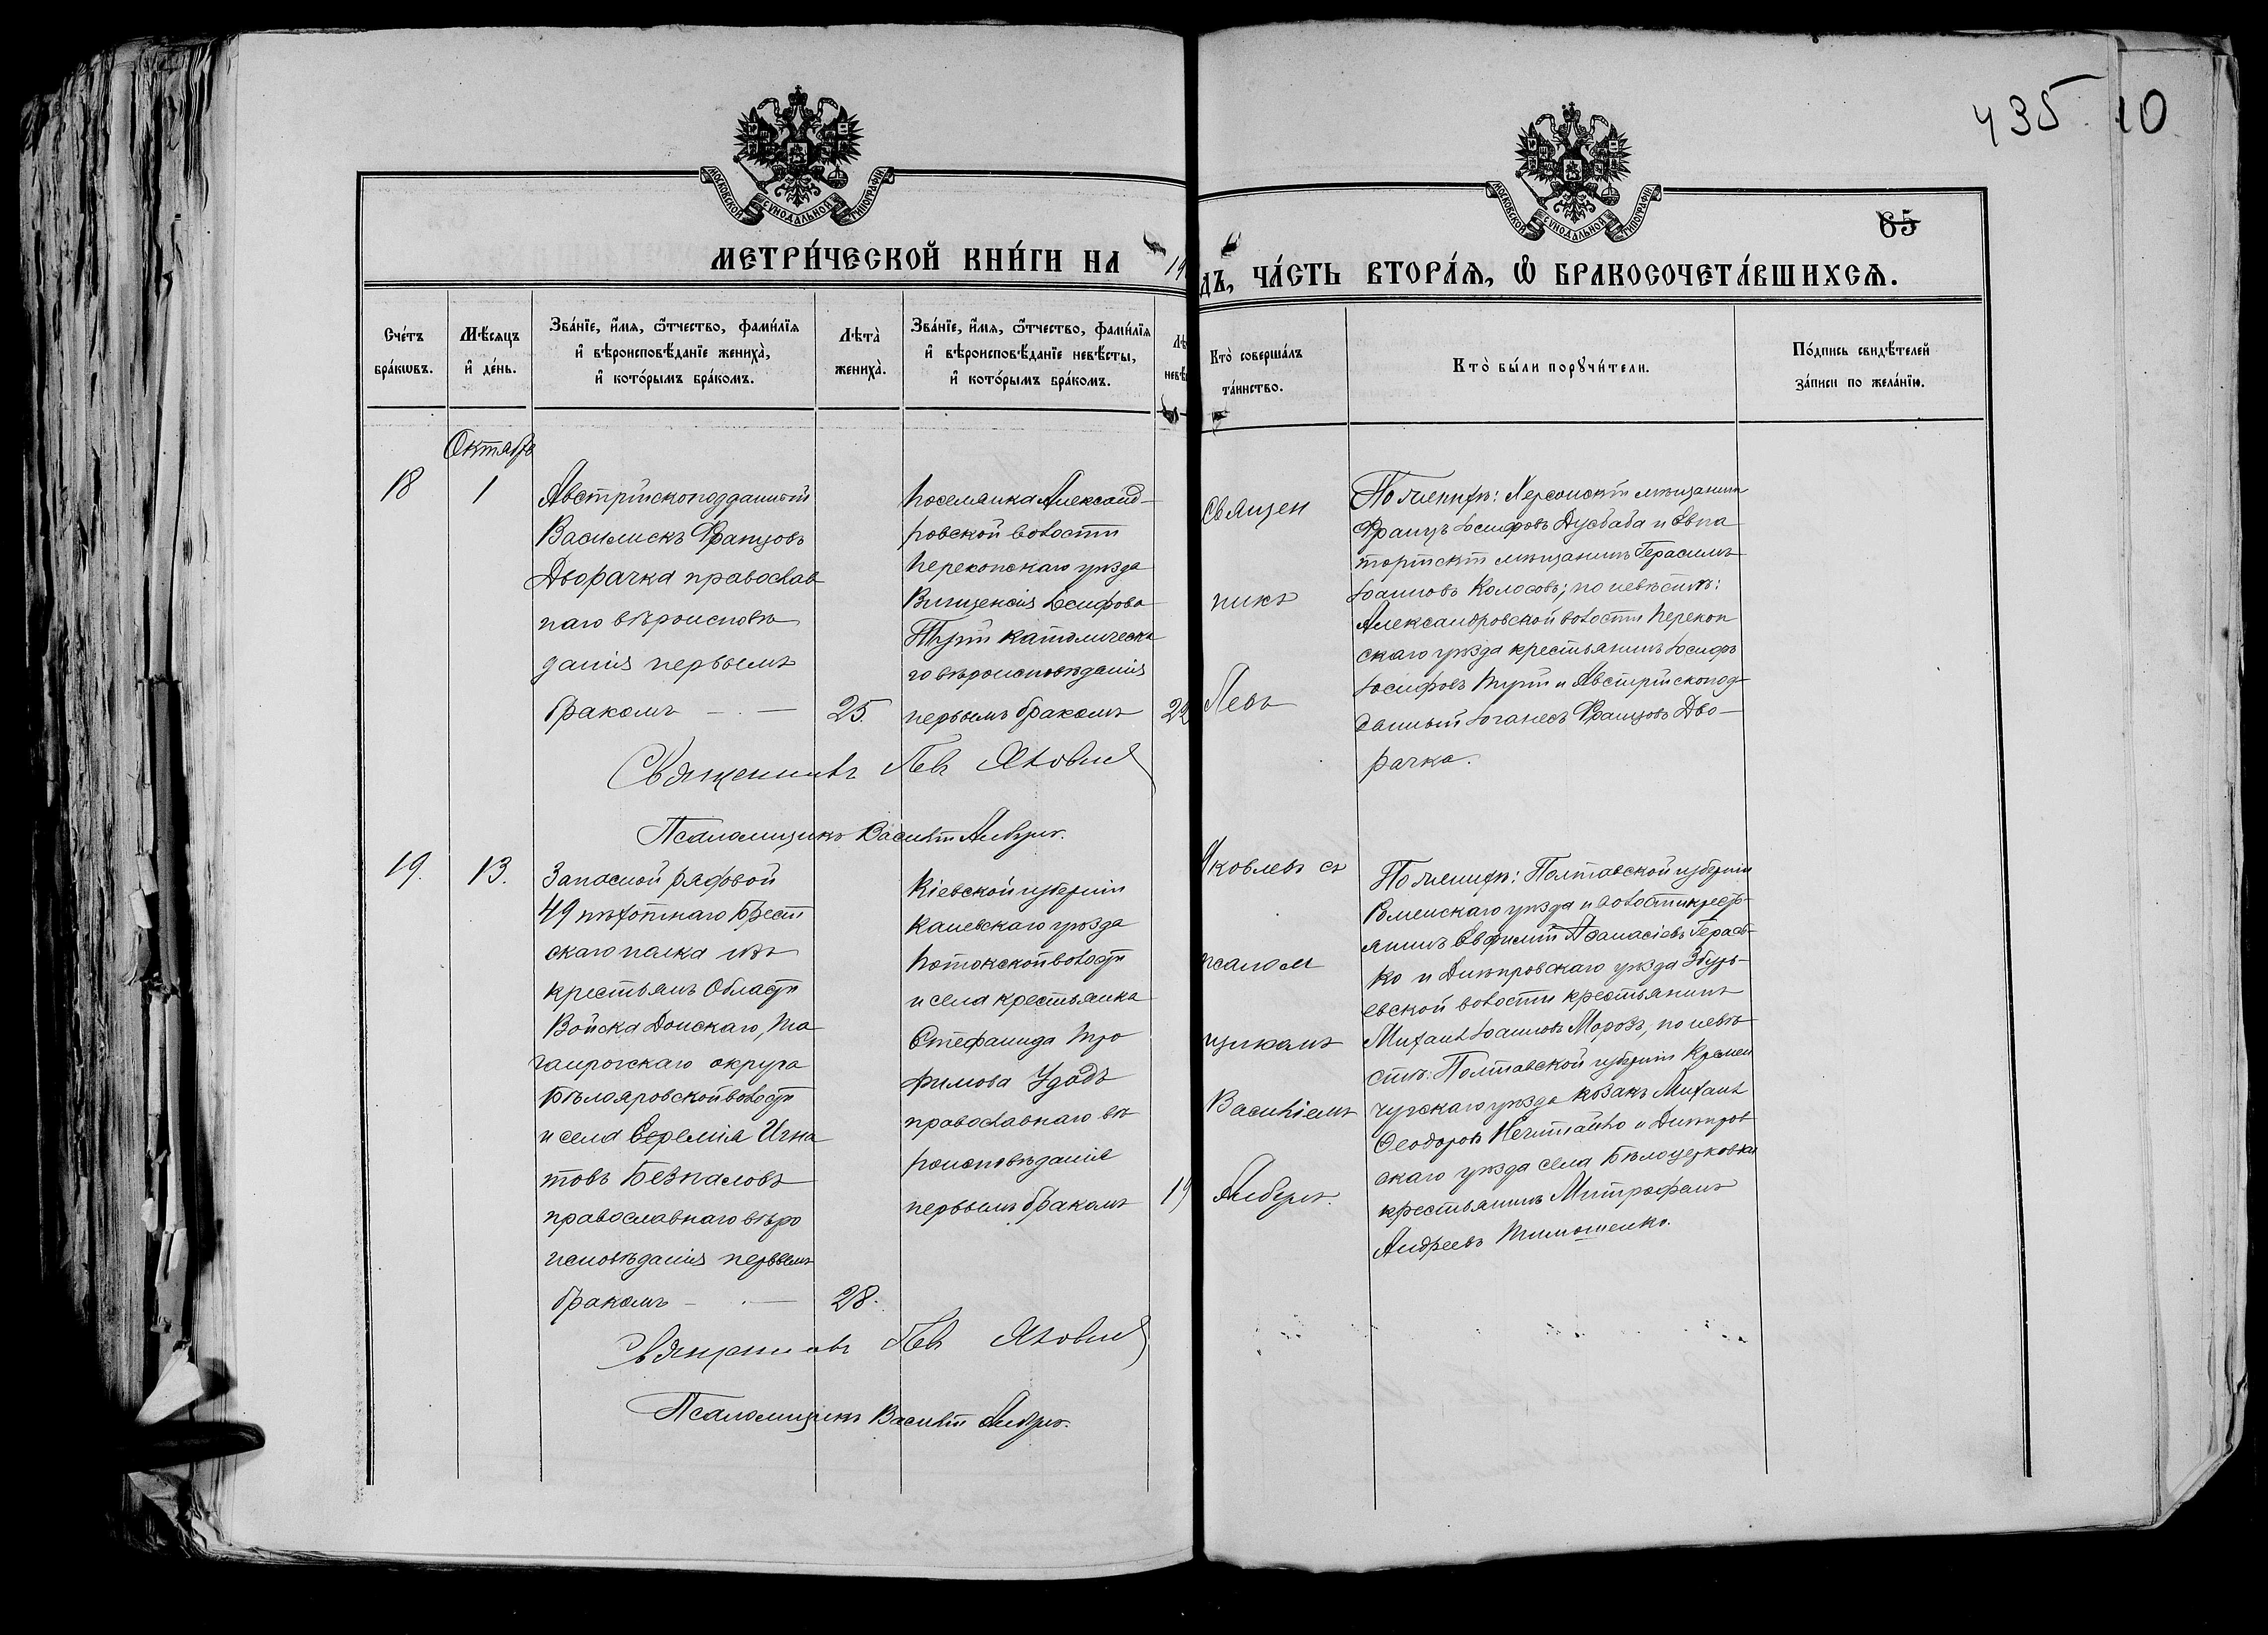 435 10
МОСКОВСКОЙ СѴНОДАЛЬНОЙ ТИПОГРАФІИ
МОСКОВСКОЙ СѴНОДАЛЬНОЙ ТИПОГРАФІИ
65
МЕТРИ́ЧЕСКОЙ КНИ́ГИ НА 19
ДЪ, ЧА́СТЬ ВТОРА́Ѧ, Ѽ БРАКОСОЧЕТА́ВШИХСѦ.
Сче́тъ
бра́кѡвъ.
Мѣ́сѧцъ
и҆ де́нь.
Зва́нїе, и҆́мѧ, ѻ҆́тчество, фами́лїѧ
и҆ вѣроисповѣ́данїе жениха̀,
и҆ кото́рымъ бра́комъ.
Лѣта̀
жениха̀.
Зва́нїе, и҆́мѧ, ѻ҆́тчество, фами́лїѧ
и҆ вѣроисповѣ́данїе невѣ́сты,
и҆ кото́рымъ бра́комъ.
Лѣ
невѣ
Кто̀ соверша́лъ
та́инство.
Кто̀ бы́ли порꙋчи́тели.
По́дпись свидѣ́телей
за́писи по жела́нїю.
Октябр
18
1
Австрійскоподданный
Василискъ Францовъ
Дворачка православ
наго вѣроисповѣ
данія первымъ
бракомъ — . —
25.
Поселянка Александ-
ровской волости
Перекопскаго уѣзда
Винценсія Іосифова
Турій католическа
го вѣроисповѣданія
первымъ бракомъ
22
Священ
никъ
Левъ
По женихѣ: Херсонскій мѣщанинъ
Францъ Іосифовъ Дузбаба и Евпа
торійскій мѣщанинъ Герасимъ
Іоанновъ Колосовъ; по невѣстѣ:
Александровской волости Перекоп
скаго уѣзда крестьянинъ Іосифъ
Іосифовъ Турій и Австрійскопод-
данный Іоганесъ Францовъ Дво-
рачка.
Священникъ Левъ Яковлев
Псаломщикъ Василій
19.
13.
Запасной рядовой
49 пѣхотнаго Брест
скаго полка изъ
крестьянъ Области
Войска Донскаго, Та
ганрогскаго округа
Бѣлояровской волости
и села Еремія Игна
товъ Безпаловъ
православнаго вѣро
исповѣданія первымъ
бракомъ — . —
28.
Кіевской губерніи
Каневскаго уѣзда
Потокской волости
и села крестьянка
Стефанида Тро
фимова Удодъ
православнаго вѣ
роисповѣданія
первымъ бракомъ
19
Яковлевъ съ
псалом
щикомъ
Василіемъ
По женихѣ: Полтавской губерніи
Роменскаго уѣзда и волости крест-
янинъ Евфимій Аѳанасіевъ Герась-
ко и Днѣпровскаго уѣзда Збурь-
евской волости крестьянинъ
Михаилъ Іоанновъ Морозъ, по невѣ
стѣ: Полтавской губерніи Кремен
чугскаго уѣзда козакъ Михаилъ
Ѳеодоровъ Нечитайло и Днѣпров
скаго уѣзда села Бѣлоцерковки
крестьянинъ Митрофанъ
Андреевъ Тимошенко.
Священникъ Левъ Яковлев
Псаломщикъ Василій